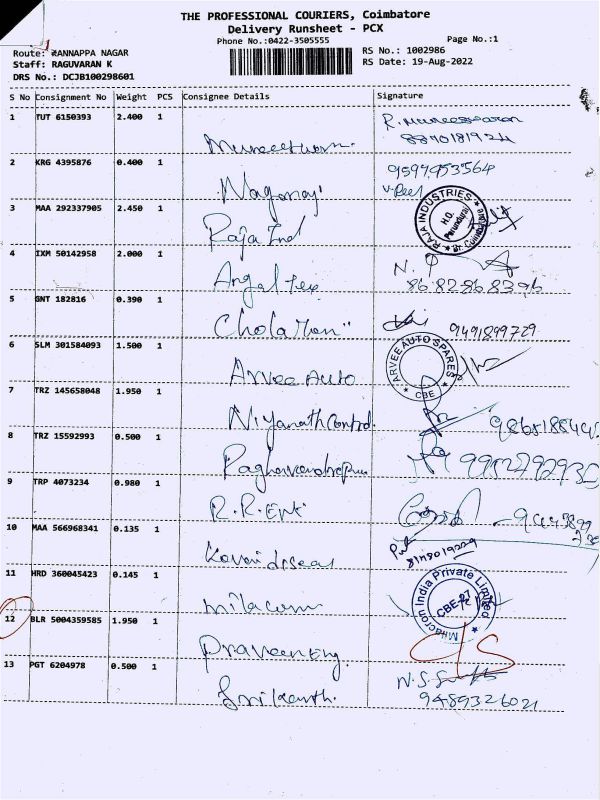 THE PROFESSIONAL COURIERS, Coimbatore
Delivery Runsheet - PCX
Phone No.:0422-3505555
Page No.:1
Route: KANNAPPA NAGAR
RS No.: 1002986
Staff: RAGUVARAN K
RS Date: 19-Aug-2022
DRS No.: DCJB100298601
S No Consignment No Weight PCS Consignee Details Signature
1 TUT 6150393 2.400 1
R. Muneeswaran
8870181924
2 KRG 4395876 0.400 1
9597953564
Nagaraj
3 MAA 292337905 2.450 1
RAJA INDUSTRIES
H.O.
Raja Ind
4 IXM 50142958 2.000 1
Angal Tex
8682868396
5 GNT 182816 0.390 1
Chola Man
9491899729
6 SLM 301584093 1.500 1
ARVEE AUTO SPARES
CBE
Arvee Auto
7 TRZ 145658048 1.950 1
8 TRZ 15592993 0.500 1
9 TRP 4073234 0.980 1
R.R. Ent
10 MAA 566968341 0.135 1
8148019229
11 HRD 360045423 0.145 1
Milacron India Private Limited
CBE-27
milacron
12 BLR 5004359585 1.950 1
Praveen Eng
13 PGT 6204978 0.500 1
Srikanth.
9489326021